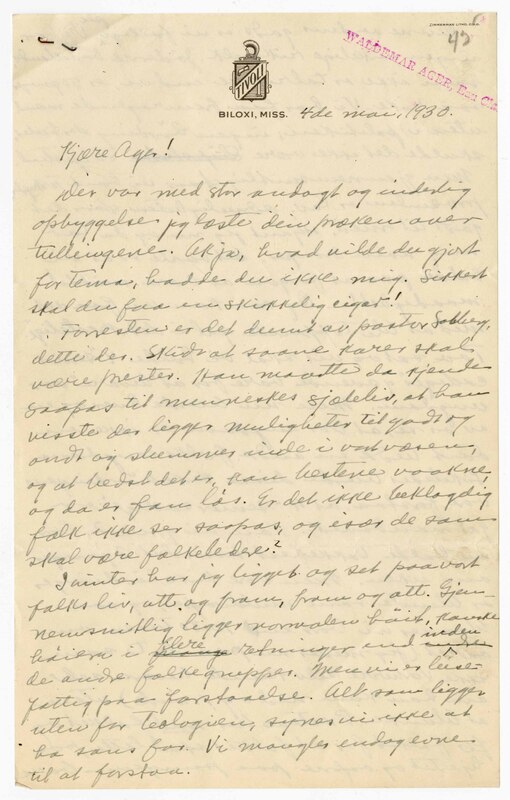 ZIMMERMAN LITHO.
42
WALDEMAR AGER, Eau Cla
TIVOLI
BILOXI, MISS.
4de mai, 1930.
Kjære Ager!
Der var med stor andagt og inderlig
opbyggelse jeg læste din præken over
tullingene. Ak ja, hvad vilde du gjort
for tema, hadde du ikke mig. Sikkert
skal du faa en skikkelig cigar!
Forresten er det dumt av pastor Solberg,
dette der. Skidt at saane karer skal
være prester. Han maatte da kjende
saapas til menneskes sjæleliv, at han
visste der ligger muligheter til godt og
ondt og slummer inde i vort væsen,
og at bedst det er, kan bestene vaakne,
og da er fan løs. Er det ikke beklagelig
folk ikke ser saapas, og især de som
skal være folkeledere?
I vinter har jeg ligget og set paa vort
folks liv, att og fram, fram og att. Gjen-
nemsnitlig ligger normalen høit, kanske
høiere i flere retninger end inden
de andre folkegrupper. Men vi er luse-
fattig paa forstaaelse. Alt som ligger
uten for teologien, synes vi ikke at
ha sans for. Vi mangler endog evne
til at forstaa.